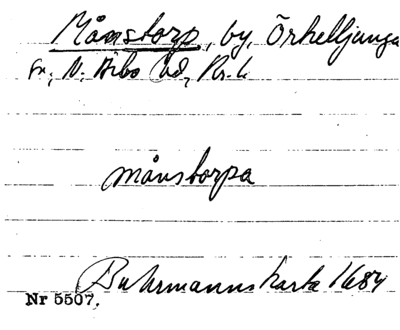 Månstorp, by, Örkelljunga
sn, N. Åsbo hd, Kr. l.
månstorpa
Buhrmanns karta 1684
Nr 5507.